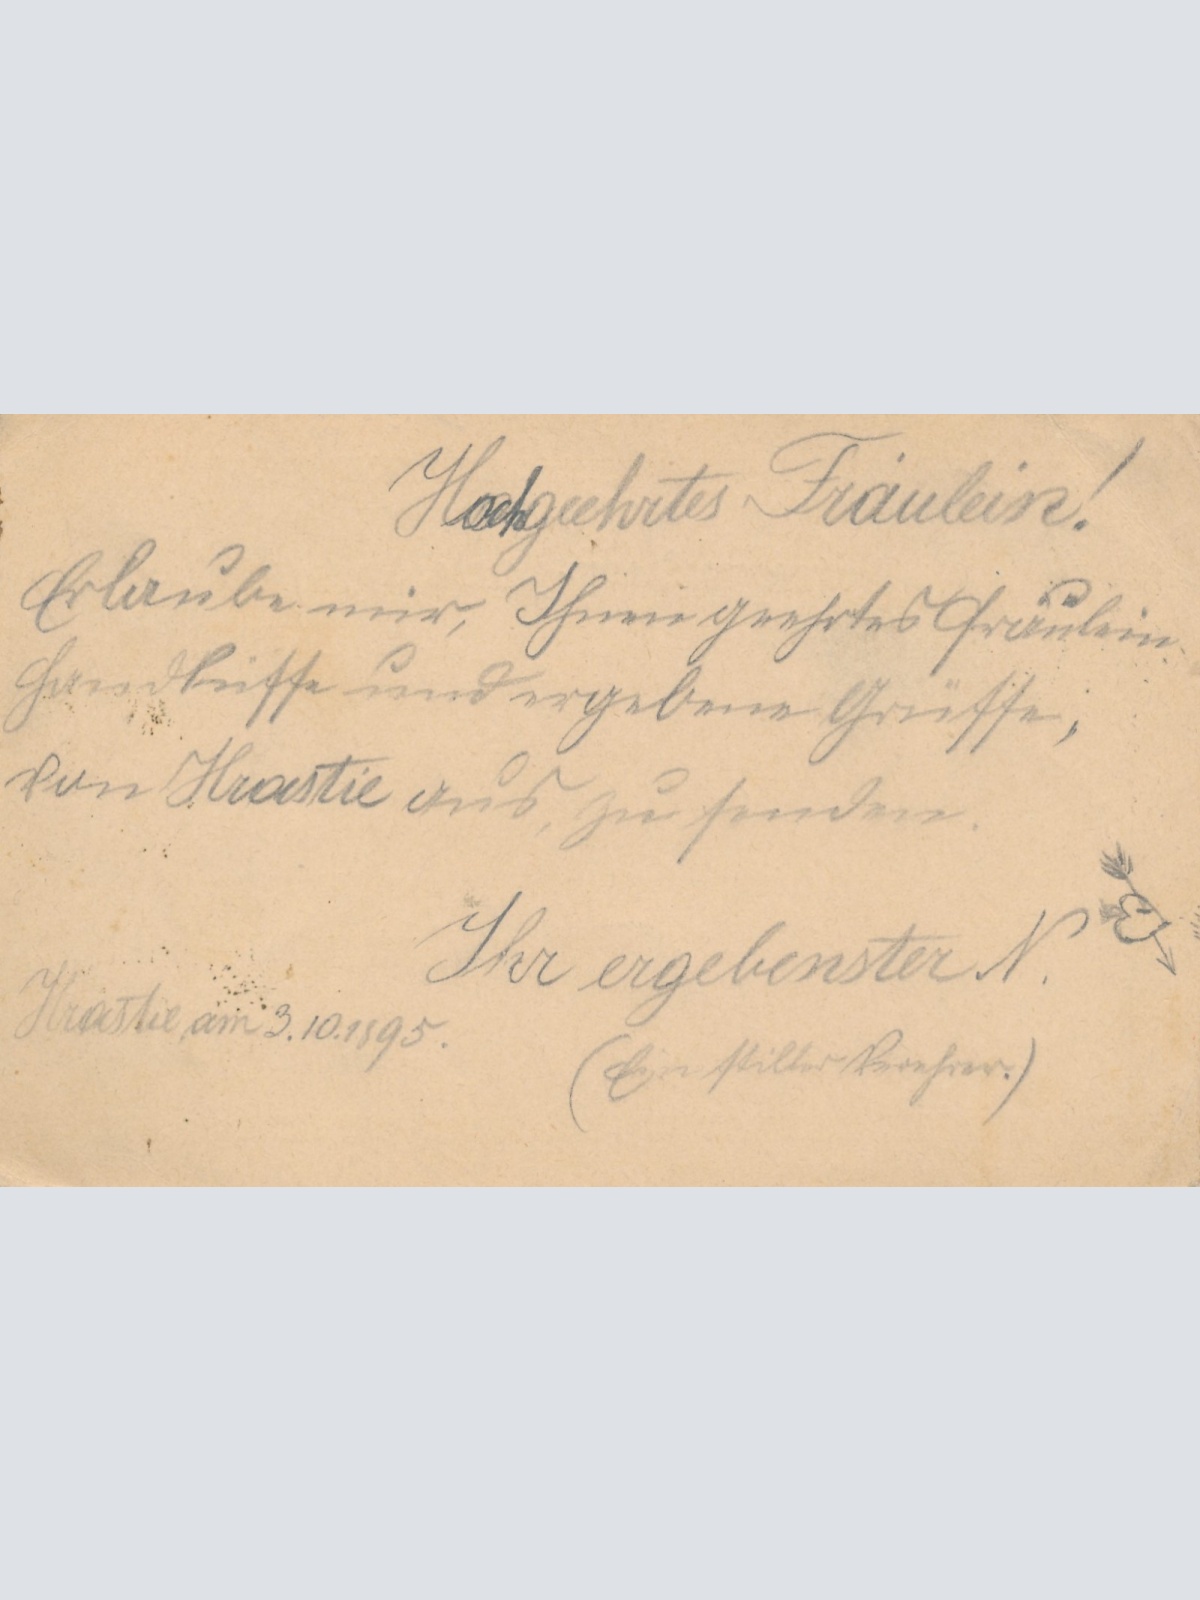 Hochgeehrtes Fräulein!
Erlaube mir, Ihnen geehrtes Fräulein
Handküsse und ergebene Grüsse,
von Hrastie aus, zu senden.
Ihr ergebenster N.
Hrastie, am 3.10.1895.
(Ein stiller Verehrer.)